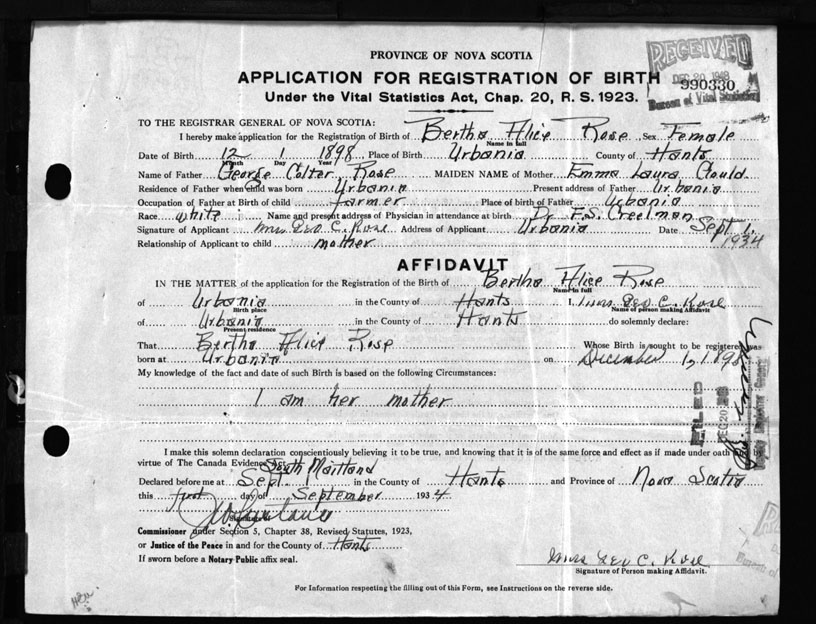 PROVINCE OF NOVA SCOTIA
RECEIVED
APPLICATION FOR REGISTRATION OF BIRTH
DEC 20 1948
990330
Under the Vital Statistics Act, Chap. 20, R. S. 1923.
Bureau of Vital Statistics
TO THE REGISTRAR GENERAL OF NOVA SCOTIA:
I hereby make application for the Registration of Birth of Bertha Alice Rose Sex Female
Name in full
Date of Birth 12 1 1898 Place of Birth Urbania County of Hants
Month Day Year
Name of Father George Colter Rose MAIDEN NAME of Mother Emma Laura Gould
Residence of Father when child was born Urbania Present address of Father Urbania
Occupation of Father at Birth of child Farmer Place of birth of Father Urbania
Race White Name and present address of Physician in attendance at birth Dr F.S. Creelman
Signature of Applicant Mrs Geo C. Rose Address of Applicant Urbania Date Sept 1.
1934
Relationship of Applicant to child mother
AFFIDAVIT
IN THE MATTER of the application for the Registration of the Birth of Bertha Alice Rose
Name in full
of Urbania in the County of Hants I, Mrs Geo C. Rose
Birth place Name of person making Affidavit
of Urbania in the County of Hants do solemnly declare:
Present residence
That Bertha Alice Rose Whose Birth is sought to be registered was
born at Urbania on December 1, 1898
My knowledge of the fact and date of such Birth is based on the following Circumstances:
I am her mother
FILED
DEC 20
I make this solemn declaration conscientiously believing it to be true, and knowing that it is of the same force and effect as if made under oath and by
virtue of The Canada Evidence
South Maitland
Declared before me at Sept. in the County of Hants and Province of Nova Scotia
this first day of September 1934
Commissioner under Section 5, Chapter 38, Revised Statutes, 1923,
or Justice of the Peace in and for the County of Hants
If sworn before a Notary Public affix seal.
Mrs Geo C. Rose
Signature of Person making Affidavit.
For Information respecting the filling out of this Form, see Instructions on the reverse side.